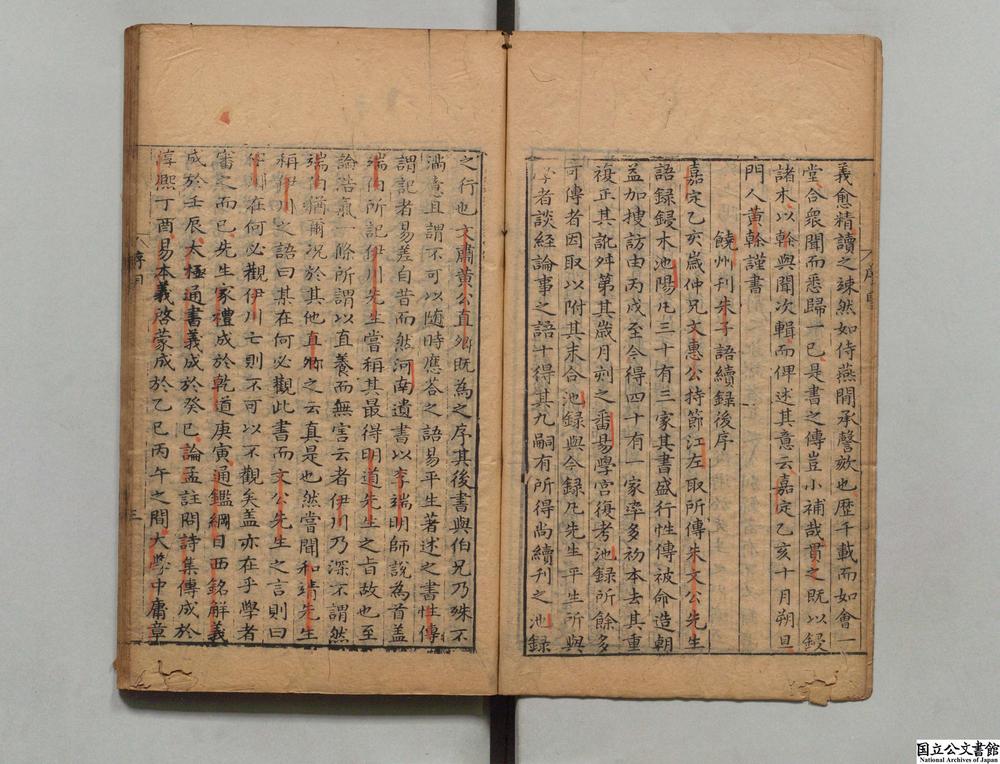 義愈精讀之竦然如侍燕閒承謦欬也歷千載而如會一
堂合衆聞而悉歸一己是書之傳豈小補哉貫之既以鋟
諸木以榦與聞次輯而俾述其意云嘉定乙亥十月朔旦
門人黃榦謹書
饒州刊朱子語續錄後序
嘉定乙亥歲仲兄文惠公持節江左取所傳朱文公先生
語錄鋟木池陽凡三十有三家其書盛行性傳被命造朝
益加搜訪由丙戌至今得四十有一家率多初本去其重
複正其訛舛第其歲月刻之番昜學宮復考池錄所餘多
可傳者因取以附其末合池錄與今錄凡先生平生所與
學者談經論事之語十得其九嗣有所得尚續刊之池錄
之行也文肅黃公直卿既為之序其後書與伯兄乃殊不
滿意且謂不可以隨時應荅之語易平生著述之書性傳
謂記者易差自昔而然河南遺書以李端明師說為首蓋
端伯所記伊川先生嘗稱其最得明道先生之旨故也至
論浩氣一條所謂以直養而無害云者伊川乃深不謂然
端伯猶爾況於其他直卿之云真是也然嘗聞和靖先生
稱伊川之語曰某在何必觀此書而文公先生之言則曰
伊川在何必觀伊川亡則不可以不觀矣蓋亦在乎學者
審之而已先生家禮成於乾道庚寅通鑑綱目西銘解義
成於壬辰太極通書義成於癸巳論孟註問詩集傳成於
淳熙丁酉易本義啓蒙成於乙巳丙午之間大學中庸章
序目
三
国立公文書館
National Archives of Japan